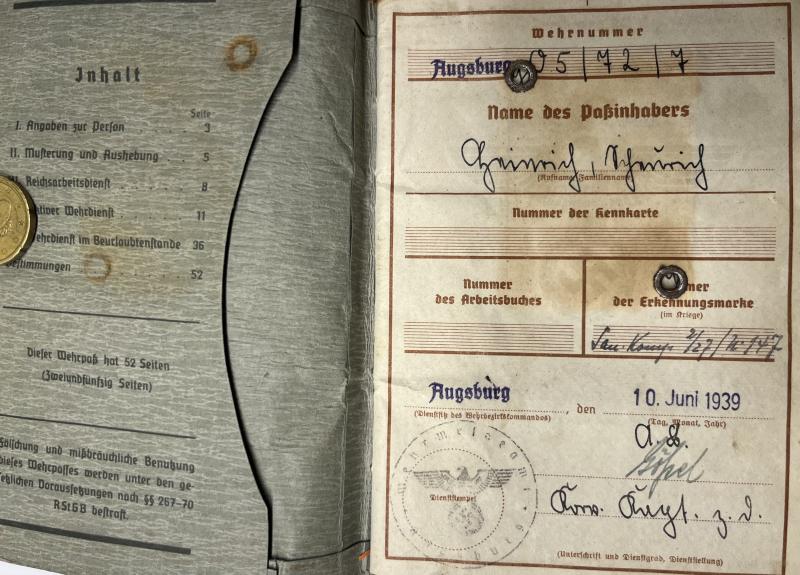 Inhalt
Seite
I. Angaben zur Person 3
II. Musterung und Aushebung 5
Reichsarbeitsdienst 8
Wehrdienst 11
Wehrdienst im Beurlaubtenstande 36
Bestimmungen 52
Dieser Wehrpaß hat 52 Seiten
(Zweiundfünfzig Seiten)
Fälschung und mißbräuchliche Benutzung
dieses Wehrpasses werden unter den ge-
setzlichen Voraussetzungen nach §§ 267-70
RStGB bestraft.
Wehrnummer
Augsburg 05/72/7
Name des Paßinhabers
Heinrich, Scheurich
(Rufname, Familienname)
Nummer der Kennkarte
Nummer
des Arbeitsbuches
der Erkennungsmarke
(im Kriege)
San. Komp. 2/27/N. 147
Augsburg, den 10. Juni 1939
(Dienstsitz des Wehrbezirkskommandos) (Tag, Monat, Jahr)
Dienststempel
Korv. Kapt. z. D.
(Unterschrift und Dienstgrad, Dienststellung)